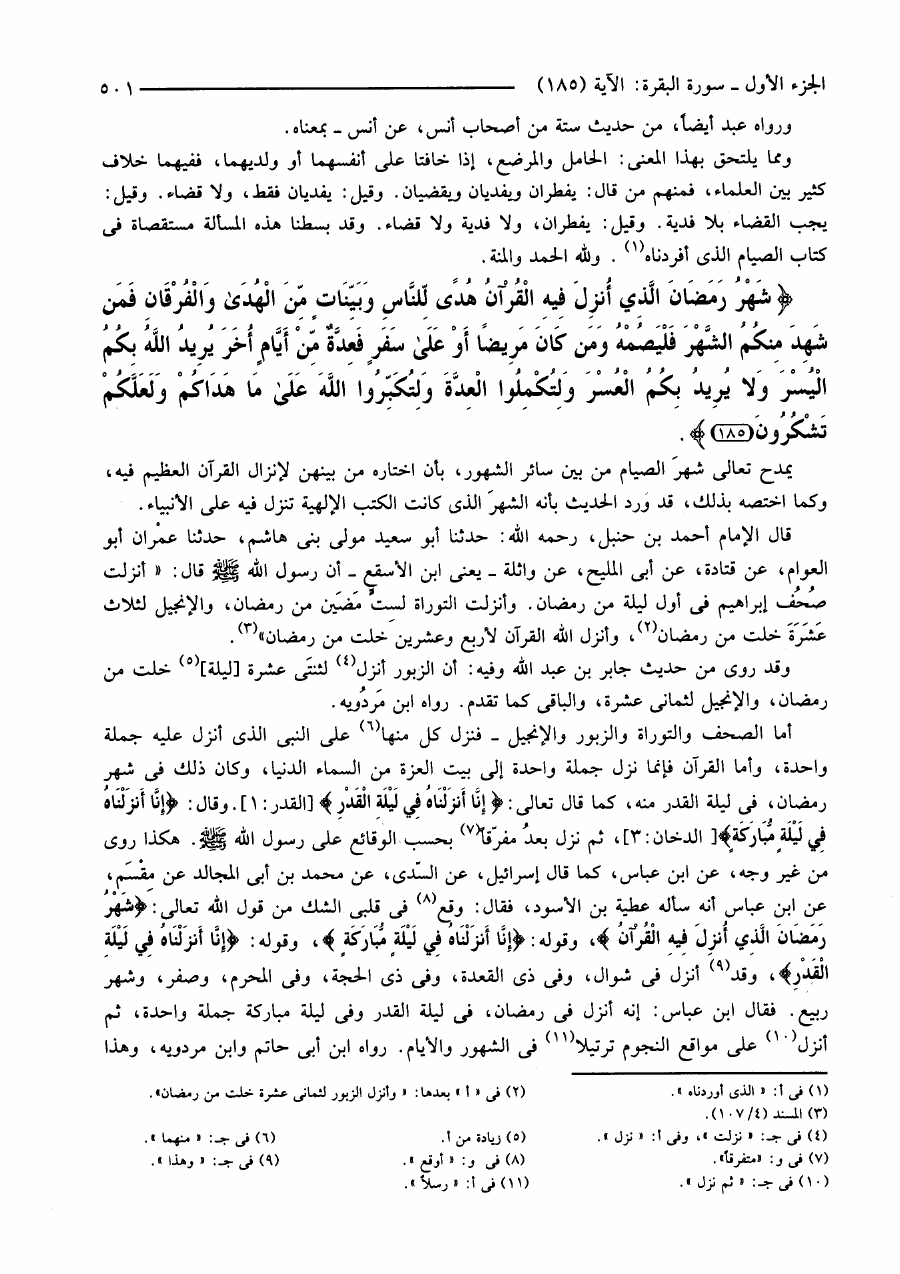 الجزء الأول ـ سورة البقرة: الآية (١٨٥) ٥٠١
ورواه عبد أيضاً، من حديث ستة من أصحاب أنس، عن أنس ـ بمعناه.
ومما يلتحق بهذا المعنى: الحامل والمرضع، إذا خافتا على أنفسهما أو ولديهما، ففيهما خلاف
كثير بين العلماء، فمنهم من قال: يفطران ويفديان ويقضيان. وقيل: يفديان فقط، ولا قضاء. وقيل:
يجب القضاء بلا فدية. وقيل: يفطران، ولا فدية ولا قضاء. وقد بسطنا هذه المسألة مستقصاة فى
كتاب الصيام الذى أفردناه(١) . ولله الحمد والمنة.
﴿ شَهْرُ رَمَضَانَ الَّذِي أُنزِلَ فِيهِ الْقُرْآنُ هُدًى لِّلنَّاسِ وَبَيِّنَاتٍ مِّنَ الْهُدَىٰ وَالْفُرْقَانِ فَمَن
شَهِدَ مِنكُمُ الشَّهْرَ فَلْيَصُمْهُ وَمَن كَانَ مَرِيضًا أَوْ عَلَىٰ سَفَرٍ فَعِدَّةٌ مِّنْ أَيَّامٍ أُخَرَ يُرِيدُ اللَّهُ بِكُمُ
الْيُسْرَ وَلا يُرِيدُ بِكُمُ الْعُسْرَ وَلِتُكْمِلُوا الْعِدَّةَ وَلِتُكَبِّرُوا اللَّهَ عَلَىٰ مَا هَدَاكُمْ وَلَعَلَّكُمْ
تَشْكُرُونَ (١٨٥) ﴾ .
يمدح تعالى شهرَ الصيام من بين سائر الشهور، بأن اختاره من بينهن لإنزال القرآن العظيم فيه،
وكما اختصه بذلك، قد وَرَد الحديث بأنه الشهرَ الذى كانت الكتب الإلهية تنزل فيه على الأنبياء.
قال الإمام أحمد بن حنبل، رحمه الله: حدثنا أبو سعيد مولى بنى هاشم، حدثنا عمْران أبو
العوام، عن قتادة، عن أبى المليح، عن واثلة ـ يعنى ابن الأسقع ـ أن رسول الله ﷺ قال: « أنزلت
صُحُف إبراهيم فى أول ليلة من رمضان. وأنزلت التوراة لسِتٍّ مَضَين من رمضان، والإنجيل لثلاث
عَشَرَةَ خلت من رمضان(٢)، وأنزل الله القرآن لأربع وعشرين خلت من رمضان»(٣).
وقد روى من حديث جابر بن عبد الله وفيه: أن الزبور أنزل(٤) لثنتَى عشرة [ليلة](٥) خلت من
رمضان، والإنجيل لثمانى عشرة، والباقى كما تقدم. رواه ابن مَردُويه.
أما الصحف والتوراة والزبور والإنجيل ـ فنزل كل منها(٦) على النبى الذى أنزل عليه جملة
واحدة، وأما القرآن فإنما نزل جملة واحدة إلى بيت العزة من السماء الدنيا، وكان ذلك فى شهر
رمضان، فى ليلة القدر منه، كما قال تعالى: ﴿ إِنَّا أَنزَلْنَاهُ فِي لَيْلَةِ الْقَدْرِ ﴾ [القدر:١]. وقال: ﴿إِنَّا أَنزَلْنَاهُ
فِي لَيْلَةٍ مُّبَارَكَةٍ﴾[ الدخان:٣]، ثم نزل بعدُ مفرّقًا(٧) بحسب الوقائع على رسول الله ﷺ. هكذا روى
من غير وجه، عن ابن عباس، كما قال إسرائيل، عن السّدى، عن محمد بن أبى المجالد عن مِقْسَم،
عن ابن عباس أنه سأله عطية بن الأسود، فقال: وقع(٨) فى قلبى الشك من قول الله تعالى: ﴿شَهْرُ
رَمَضَانَ الَّذِي أُنزِلَ فِيهِ الْقُرْآنُ ﴾، وقوله: ﴿إِنَّا أَنزَلْنَاهُ فِي لَيْلَةٍ مُّبَارَكَةٍ ﴾، وقوله: ﴿إِنَّا أَنزَلْنَاهُ فِي لَيْلَةِ
الْقَدْرِ﴾، وقد(٩) أنزل فى شوال، وفى ذى القعدة، وفى ذى الحجة، وفى المحرم، وصفر، وشهر
ربيع. فقال ابن عباس: إنه أنزل فى رمضان، فى ليلة القدر وفى ليلة مباركة جملة واحدة، ثم
أنزل(١٠) على مواقع النجوم ترتيلا(١١) فى الشهور والأيام. رواه ابن أبى حاتم وابن مردويه، وهذا
(١) فى أ: « الذى أوردناه ». (٢) فى « أ » بعدها: « وأنزل الزبور لثمانى عشرة خلت من رمضان».
(٣) المسند (١٠٧/٤).
(٤) فى جـ: « نزلت »، وفى أ: « نزل ». (٥) زيادة من أ. (٦) فى جـ: « منهما ».
(٧) فى و: «متفرقاً». (٨) فى و: « أوقع ». (٩) فى جـ: « وهذا ».
(١٠) فى جـ: « ثم نزل ». (١١) فى أ: « رسلاً ».